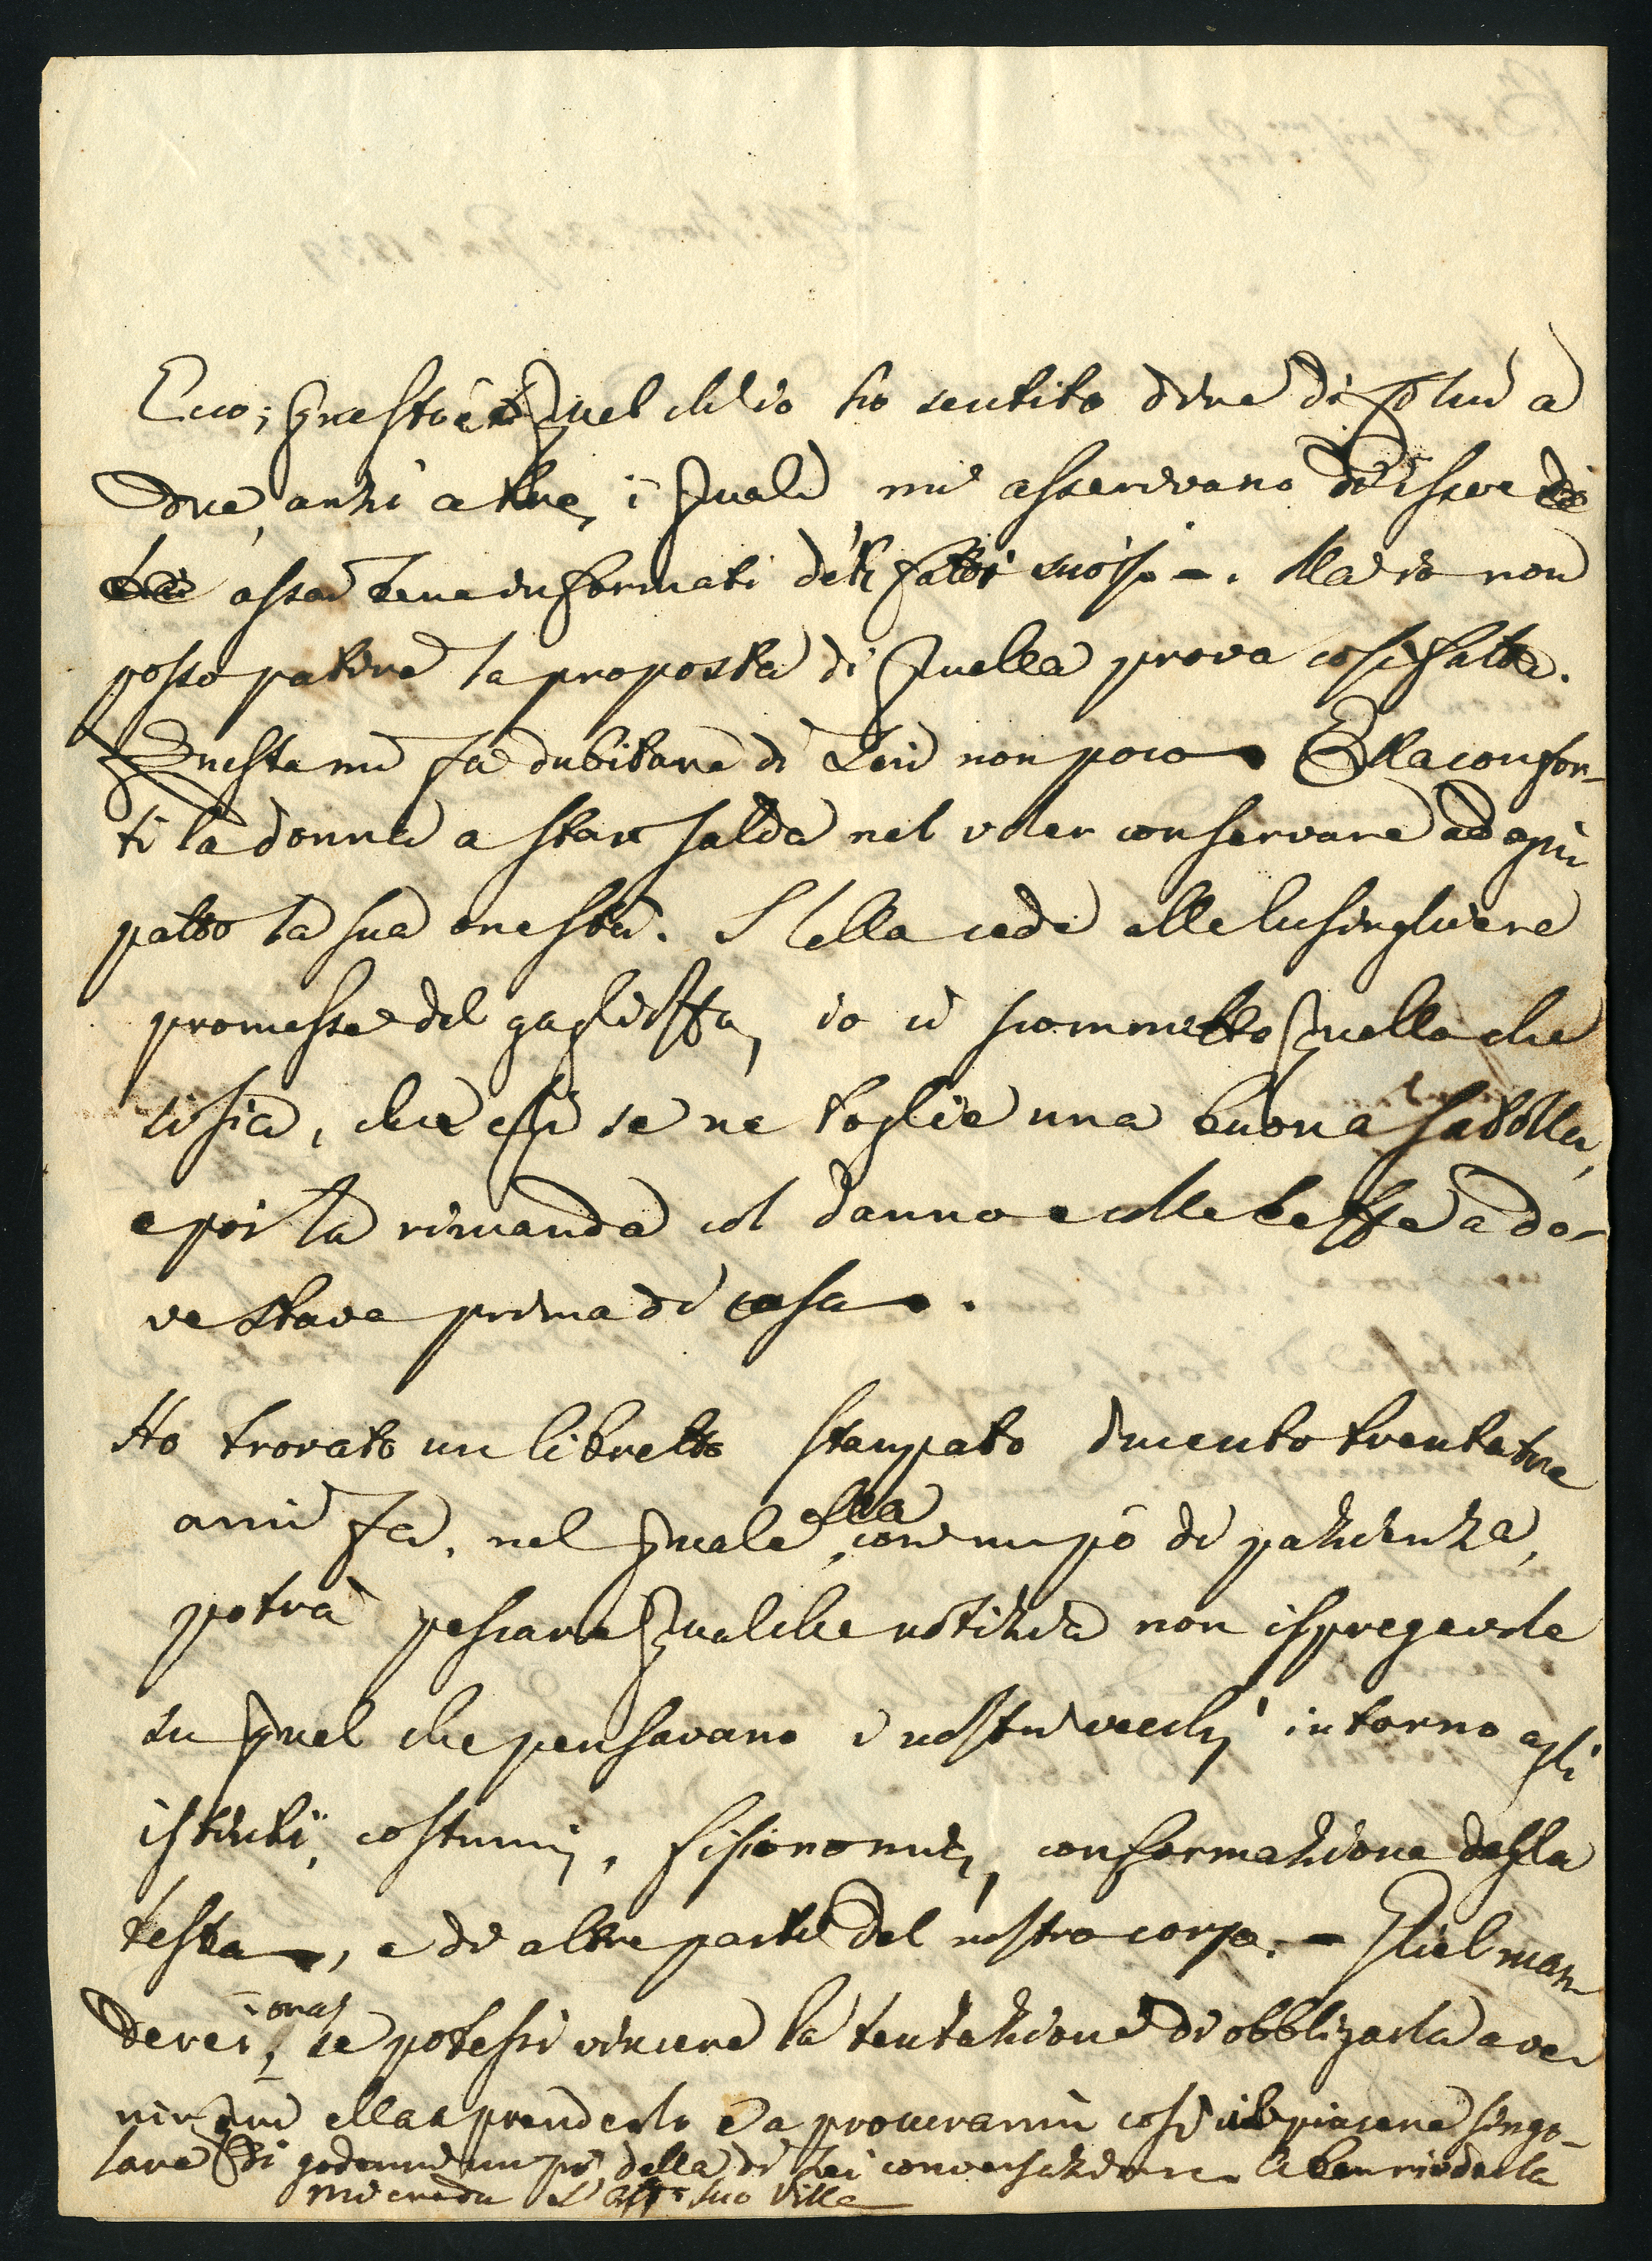 Ecco; questo è quel ch'io ho sentito dire di colui a
due, anzi a tre, i quali mi asserivano d'essere
assai bene informati de' fatti suoi. Ma io non
posso patire la proposta di quella prova così fatta.
Questa mi fa dubitare di Lui non poco. Ella confor-
ti la donna a star salda nel voler conservare ad ogni
patto la sua onestà. S'ella cede alle lusinghiere
promesse del gaglioffo, io ci scommetto quello che
si sia, che egli se ne toglie una buona satolla,
e poi la rimanda col danno e colle beffe a do-
ve stava prima di casa.
Ho trovato un libretto stampato ducento trentatre
anni fa, nel quale ella, con un pò di pazienza,
potrà pescare qualche notizia non ispregevole
su quel che pensavano i nostri vecchj intorno agli
istinti, costumi, fisionomie, conformazione della
testa, e di altre parti del nostro corpo. - Gliel man
derei ora, se potessi vincere la tentazione di obbligarla a ve
nir qui ella a prenderlo e a procurarmi così il piacere singo-
lare di godermi un pò della di Lei conversazione. A ben rivederla
mi creda L'aff. suo Villa